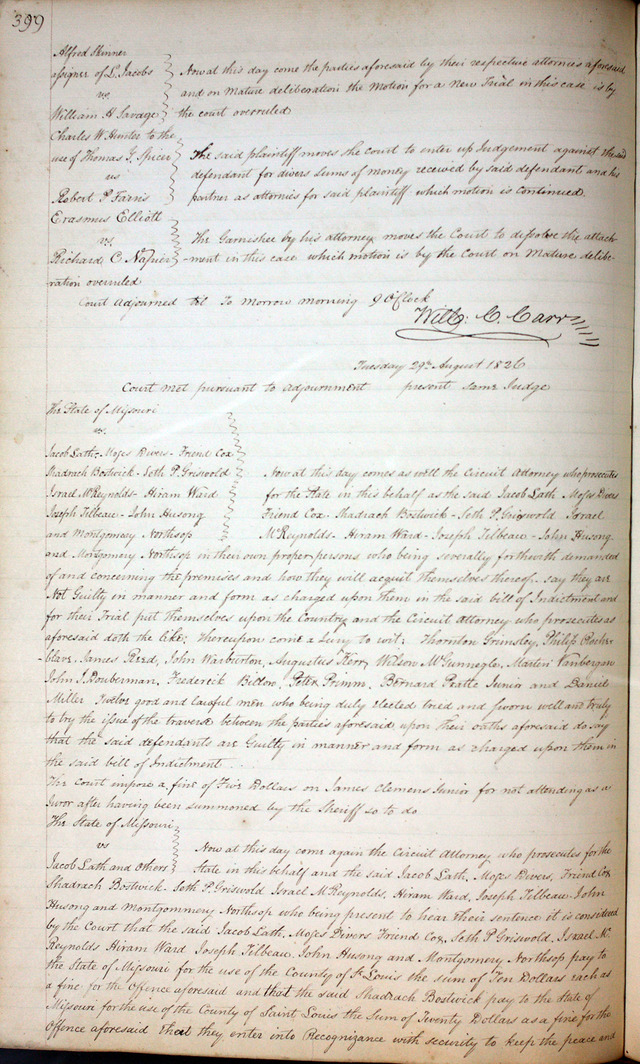 399
Alfred Skinner
assignee of L. Jacobs
vs.
William H. Savage
Now at this day come the parties aforesaid by their respective attornies aforesaid
and on mature deliberation the Motion for a New Trial in this case is by
the court overruled
Charles W. Hunter to the
use of Thomas J. Spicer
vs
Robert P. Farris
The said plaintiff moves the court to enter up Judgement against the said
defendant for divers sums of money received by said defendant and his
partner as attornies for said plaintiff which motion is continued
Erasmus Elliott
vs.
Richard C. Napier
The Garnishee by his attorney moves the Court to dissolve the attach-
-ment in this case which motion is by the Court on Mature delibe-
ration overruled
Court Adjourned til To Morrow morning 9 OClock
Will. C. Carr
Tuesday 29th August 1826
Court met pursuant to adjournment present same Judge
The State of Missouri
vs.
Jacob Lath - Moses Divers - Friend Cox
Shadrach Bostwick - Seth P. Griswold
Israel McReynolds - Hiram Ward
Joseph Tilbeau - John Husong
and Montgomery Northsop
Now at this day comes as well the Circuit Attorney who prosecutes
for the State in this behalf as the said Jacob Lath Moses Divers
Friend Cox - Shadrach Bostwick - Seth P. Griswold Israel
McReynolds - Hiram Ward - Joseph Tilbeau - John Husong
and Montgomery Northsop in their own proper persons who being severally forthwith demanded
of and concerning the premises and how they will acquit themselves thereof say they are
Not Guilty in manner and form as charged upon them in the said bill of Indictment and
for their Trial put themselves upon the Country and the Circuit Attorney who prosecutes as
aforesaid doth the like; thereupon come a Jury to wit; Thornton Grimsley, Philip Roche-
-blave, James Reed, John Warburton, Augustus Kerr, Wilson McGunnegle, Martin Vanbergin
John J. Douberman, Frederick Billow, Peter Primm, Bernard Pratte Junior and Daniel
Miller Twelve good and lawful men who being duly elected tried and sworn well and truly
to try the issue of the traverse between the parties aforesaid upon their oaths aforesaid do say
that the said defendants are Guilty in manner and form as charged upon them in
the said bill of Indictment . . .
The Court impose a fine of Five Dollars on James Clemens Junior for not attending as a
Juror after having been summoned by the Sheriff so to do
The State of Missouri
vs
Jacob Lath and others
Now at this day come again the Circuit Attorney who prosecutes for the
State in this behalf and the said Jacob Lath, Moses Divers, Friend Cox
Shadrach Bostwick - Seth P. Griswold Israel McReynolds, Hiram Ward, Joseph Tilbeau John
Husong and Montgommery Northsop who being present to hear their sentence it is considered
by the Court that the said Jacob Lath, Moses Divers Friend Cox, Seth P Griswold, Israel Mc.
Reynolds Hiram Ward Joseph Tilbeau, John Husong and Montgomery Northsop pay to
the State of Missouri for the use of the County of St Louis the sum of Ten Dollars each as
a fine for the Offence aforesaid and that the said Shadrach Bostwick pay to the State of
Missouri for the use of the County of Saint Louis the Sum of Twenty Dollars as a fine for the
Offence aforesaid that they enter into Recognizance with security to keep the peace and